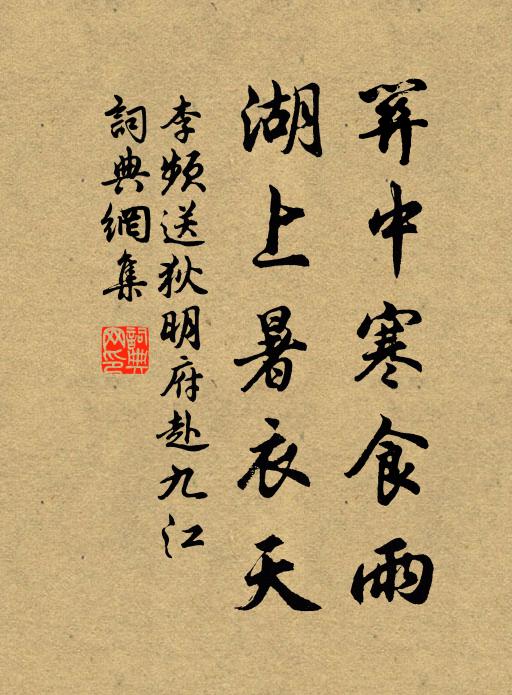 關中寒食雨
湖上暑衣天
李頻送狄明府赴九江
詞典網集
詞典网印